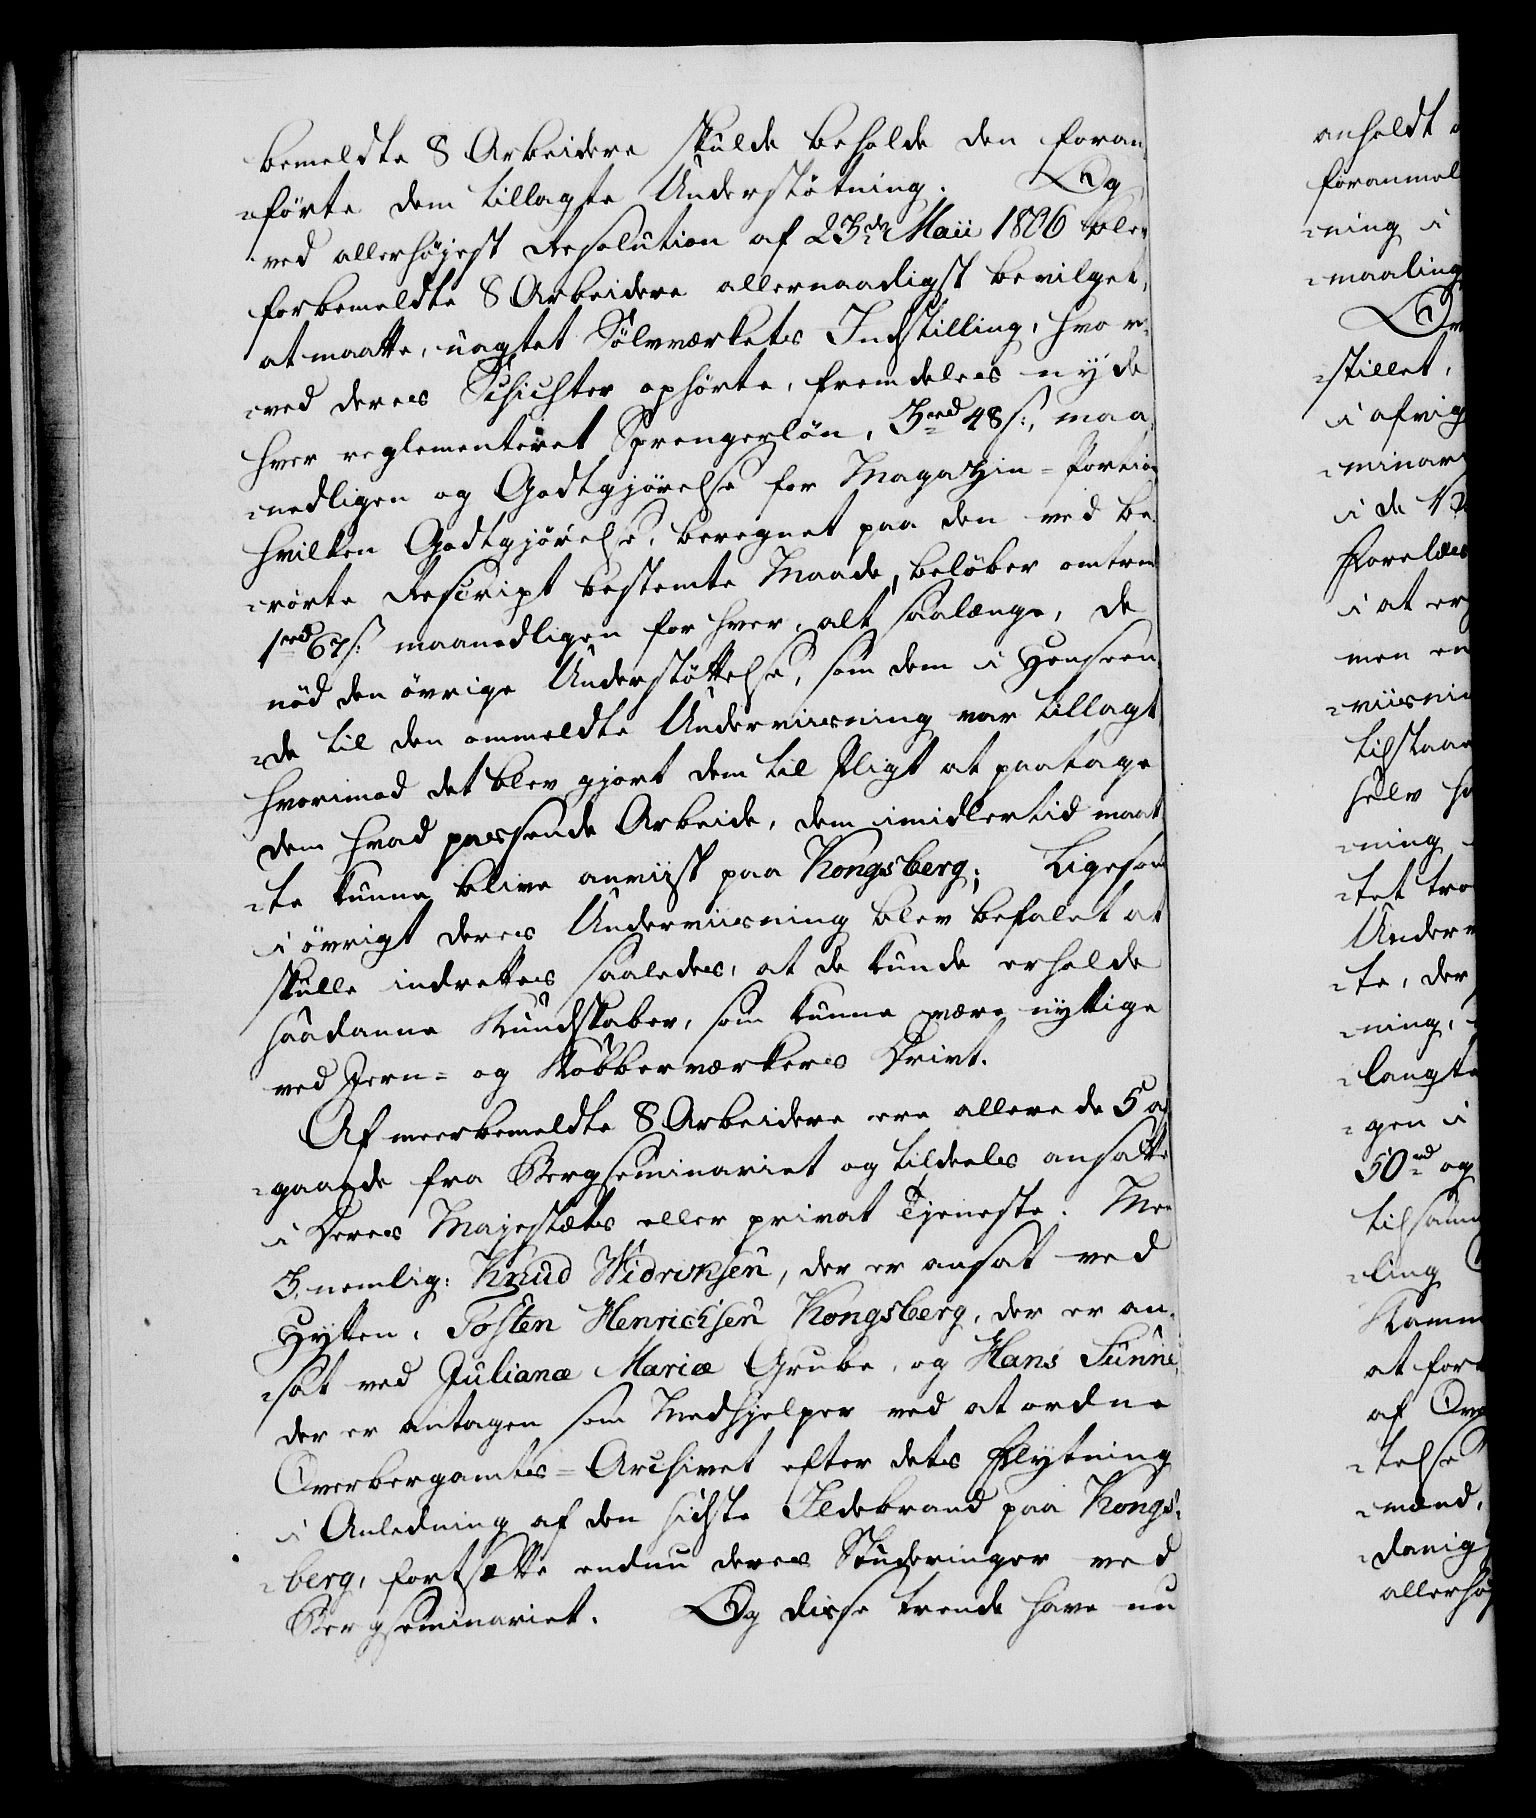 bemeldte 8 Arbeidere skulde beholde den foran
-førte dem tillagte Understøtning. Og
ved allerhøjest Resolution af 23de Maii 1806 blev
forbemeldte 8 Arbeidere allernaadigst bevilget,
at maatte, uagtet Sølvværkets Indstilling, hvor-
-ved deres Schichter ophørte, fremdeles nyde
hver reglementeret Sprengerløn, 3rd 48 s:, maa-
-nedligen og Godtgjørelse for Magazin-Portion
hvilken Godtgjørelse, beregnet paa den ved be-
-rørte Rescript bestemte Maade, beløber omtrent
1rd 67 s: maanedligen for hver, alt saalænge, de
nød den øvrige Understøttelse, som dem i Henseen-
-de til den ommeldte Underviisning var tillagt,
hvorimod det blev gjort dem til Pligt at paatage
dem hvad passende Arbeide, dem imidlertid maat-
-te kunne blive anviist paa Kongsberg; Ligesom
i øvrigt deres Underviisning blev befalet at
skulle indrettes saaledes, at de kunde erholde
saadanne Kundskaber, som kunne være nyttige
ved Jern- og Kobberværkers Drivt.
Af meerbemeldte 8 Arbeidere ere allerede 5 af
-gaaede fra Bergseminariet og tildeels ansatte
i Deres Majestæts eller privat Tjeneste. Men
3, nemlig: Knud Widriksen, der er ansat ved
Hytten, Tosten Henrichsen Kongsberg, der er an-
-sat ved Juliane Mariæ Grube, og Hans Sunne,
der er antagen som Medhjelper ved at ordne
Overbergamts-Archivet efter dets Flytning
i Anledning af den sidste Ildebrand paa Kongs-
-berg, fortsætte endnu deres Studeringer ved
Bergseminariet. Og disse trende have nu
anholdt
foranmel
-ning i
-maaling
-stillet,
i afvig
-minari
i de
Forelæs
i at er
men en
-viisnin
tilstaae
selv
-ning
-tet
Underv
-te, der
-ning,
-langte
-gen i
50rd og
tilsam
-ling
Kamm
at for
af
-telse
-mænd,
-danig
allerhøj